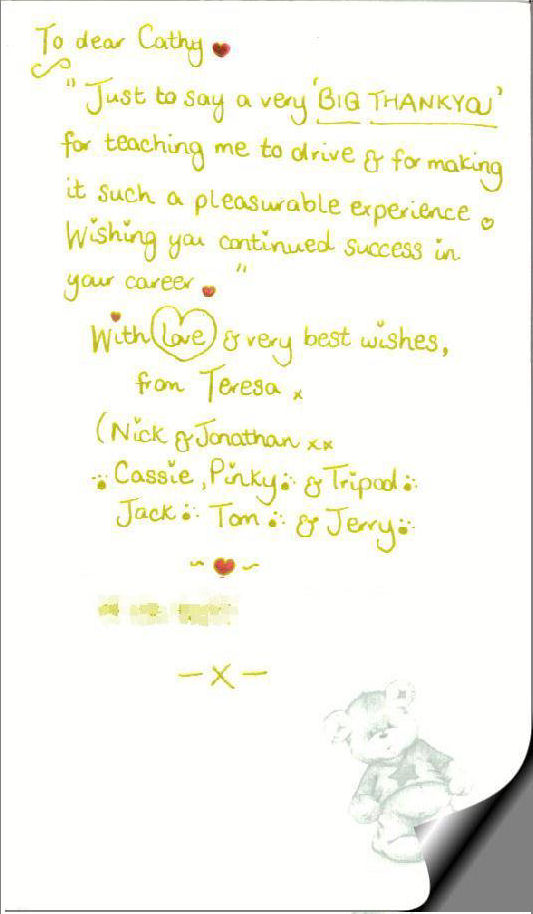 To dear Cathy
"Just to say a very 'BIG THANKYOU'
for teaching me to drive & for making
it such a pleasurable experience
Wishing you continued success in
your career "
With love & very best wishes,
from Teresa x
(Nick & Jonathan xx
Cassie, Pinky & Tripod
Jack Tom & Jerry
- x -